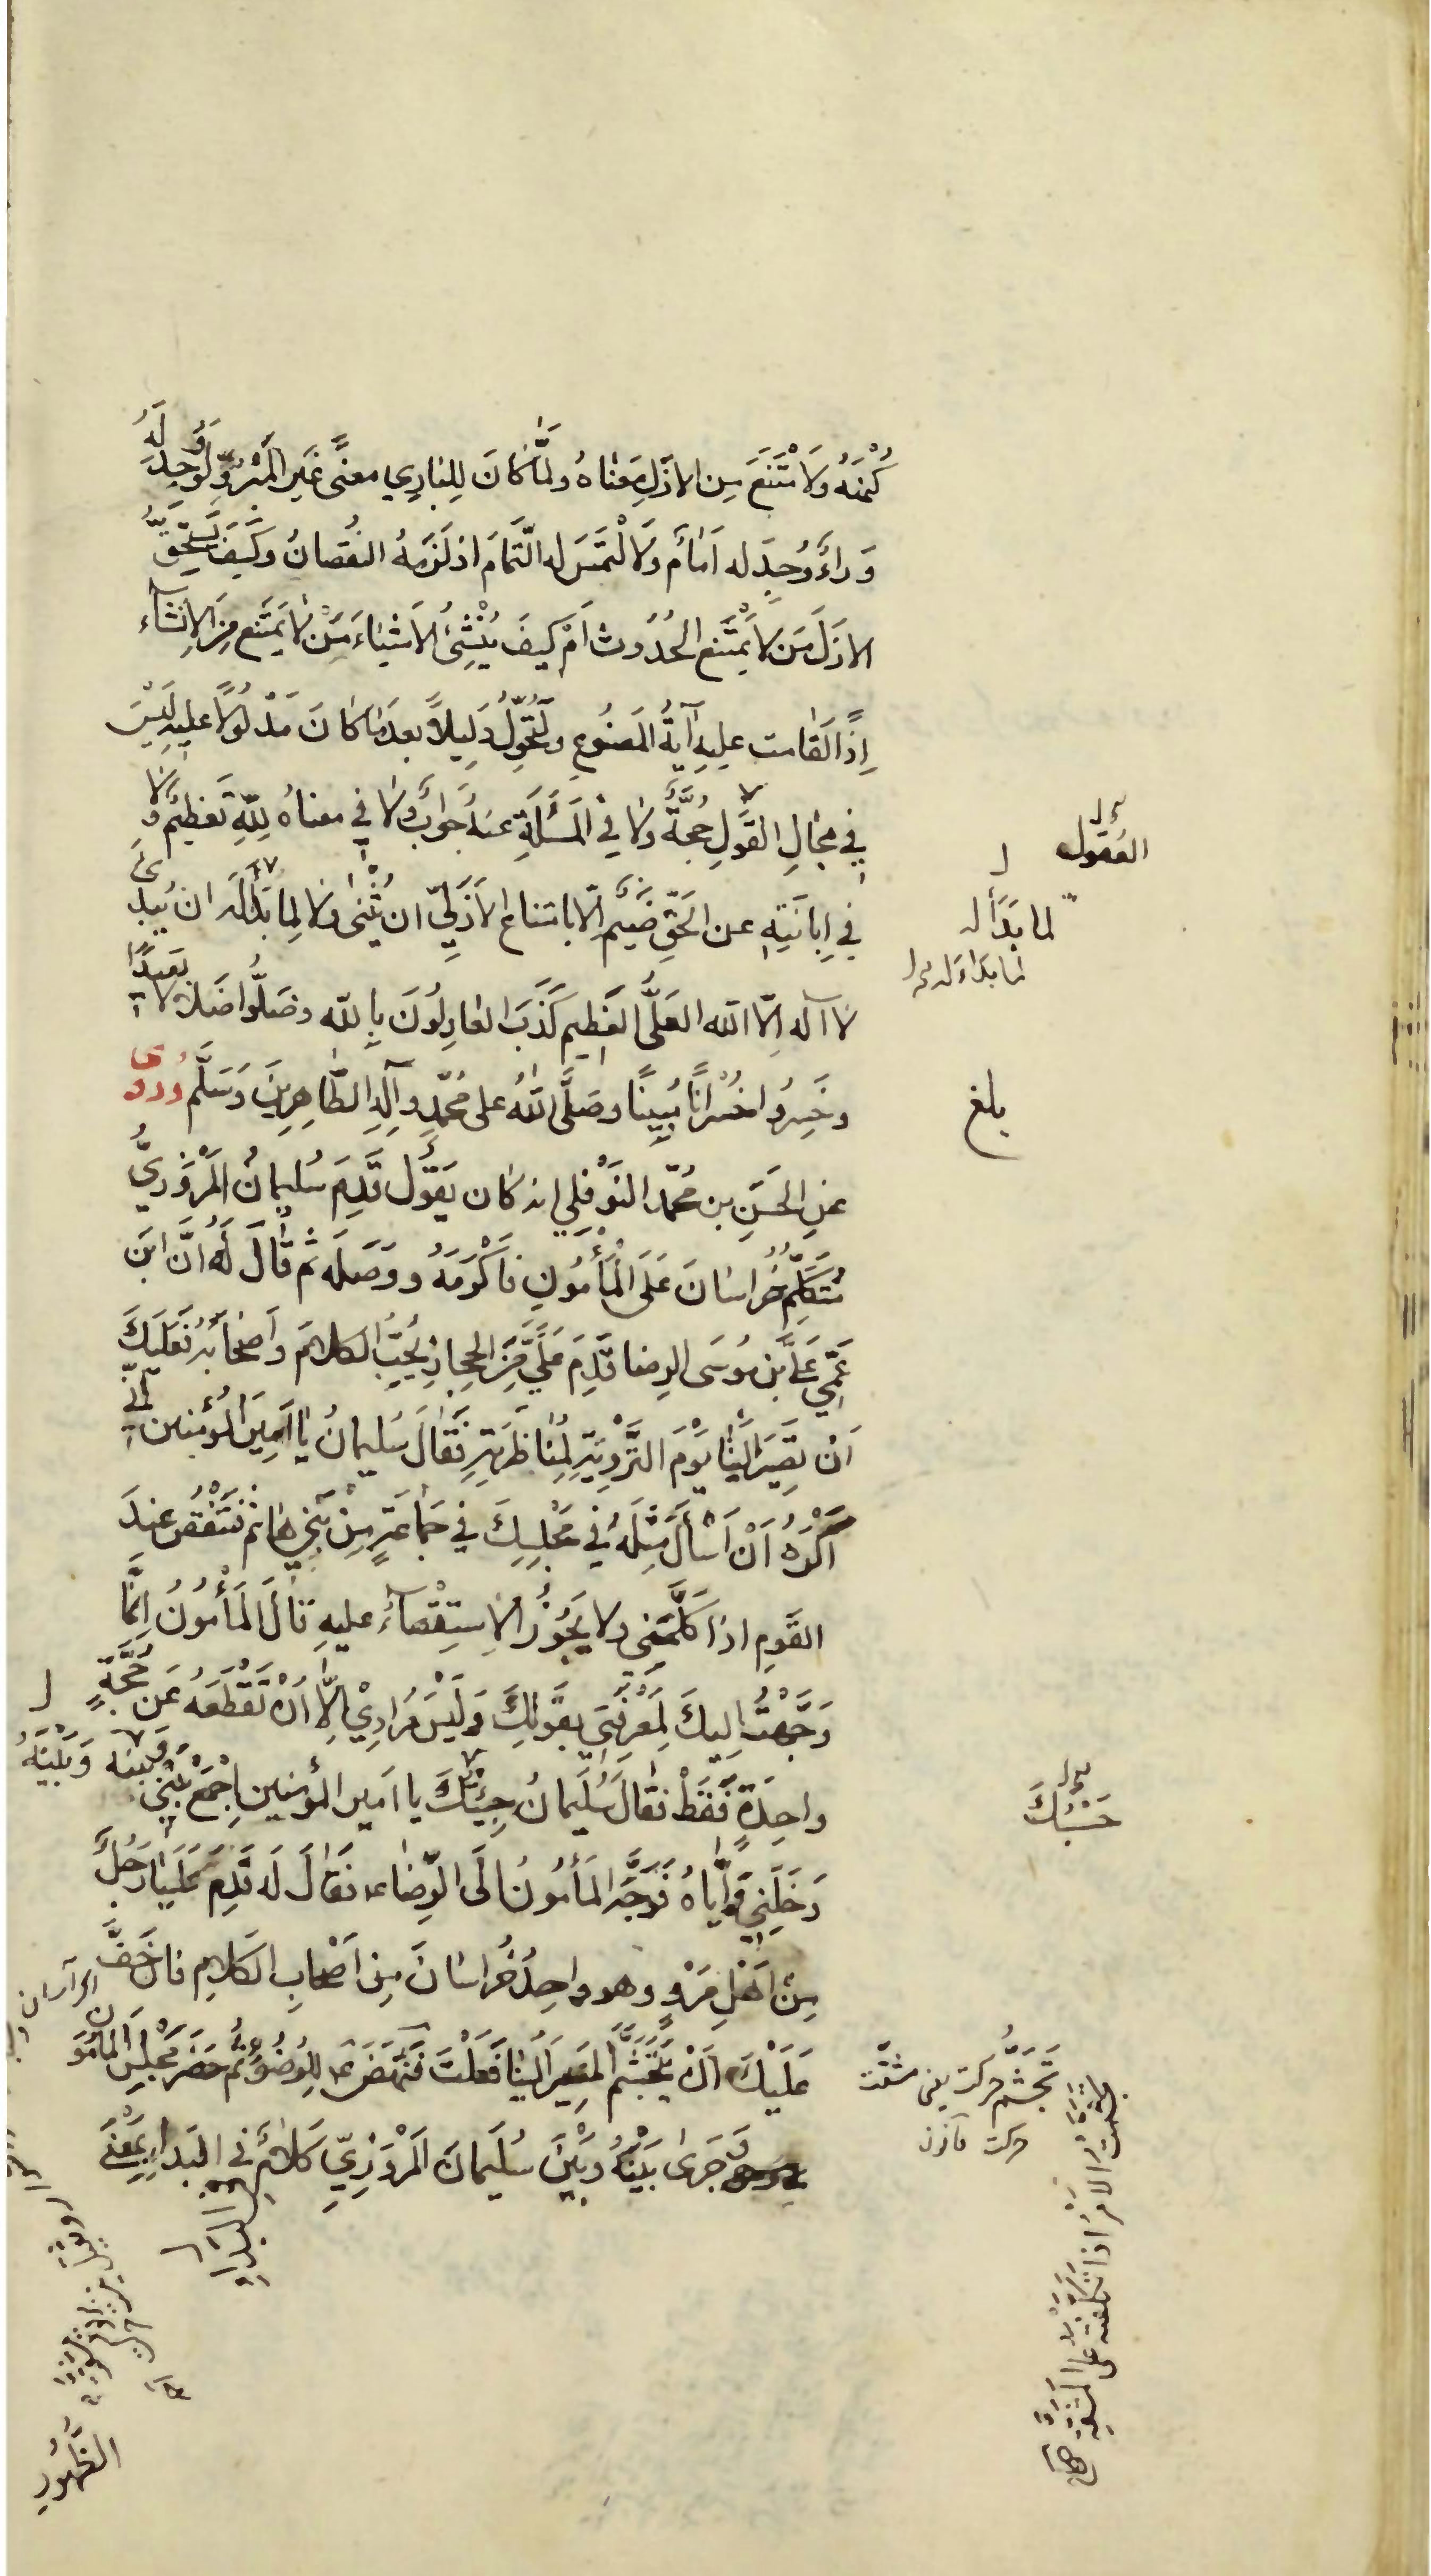 كُنْهُهُ وَلَامْتَنَعَ مِنَ الازَلِ مَعْناهُ وَلَمَّا كَانَ لِلبَارِي مَعنًى غَيرَ المَبْرُوِّ لَوْ وُجِدَ لَهُ
وَراءٌ وُجِدَ له اَمَامٌ وَلَالْتَمَسَ له التَّمَامَ اذ لَزِمَهُ النُقصَانُ وَكَيفَ يَستَحِقُّ
الازَلَ مَن لَا يَمْتَنِعُ الحُدُوثَ اَمْ كَيفَ يُنْشِئُ الاَشياءَ مَنْ لا يَمتَنِعُ مِنَ الاِنشَآءِ
اِذًا لَقامت عليهِ آيَةُ المَصنُوعِ وَلَتُحَوِّلُ دَلِيلاً بعدَ ما كانَ مَدْلُولًا عليهِ لَيْسَ
فِي مَجَالِ القَولِ حُجَّةٌ ولا فِي المَسْئَلَةِ عَنهُ جَوَابٌ وَلا في معناهُ لِلّٰهِ تَعظِيمٌ وَلَا
فِي اِبانَتِهِ عن الحَقِّ ضَيْمٌ اِلّا بامتناعِ الاَزَلِيِّ ان يُثْنى ولا لِما بَدَأَ لَهُ ان يَبدَئَ
لا اله اِلّا الله العَلِيُّ العَظِيم كَذَبَ العَادِلُونَ بِاللّه وضَلُّوا ضَلَالًا بَعِيدًا
وخَسِرُوا خُسْرَانًا مُبِينًا وصَلَّى اللهُ على مُحَمّدٍ وآلِهِ الطَّاهِرِينَ وَسَلَّم رُوِىَ
عَنِ الحَسَنِ بن مُحَمّد النَوْفَلِي انه كان يَقُولُ قَدِمَ سُليمانُ المَرْوَزِيُّ
مُتَكَلِّمُ خُراسانَ عَلَى المَأْمُونِ فَاَكْرَمَهُ ووَصَلَه ثم قَالَ لَهُ اِنَّ ابنَ
عَمِّي عَلِيَّ بنَ مُوسَى الرضا قَدِمَ عَلَيَّ مِنَ الحِجازِ يُحِبُّ الكلامَ وأَصْحَابَه فعَلَيكَ
اَنْ تَصِيرَ اِلَيْنَا يَوْمَ التَّرْوِيَةِ لِمُناظَرَتِهِ فَقَالَ سُليمانُ يا اَمِيرَ المُؤمِنين اِنِّي
اَكْرَهُ اَنْ اَسْأَلَ مِثْلَهُ في مَجْلِسِكَ في جَمَاعَةٍ مِنْ بَنِي هَاشِم فَيَنتَقِصُ عِندَ
القَومِ اذا كَلَّمَنِي ولا يَجُوزُ الاِستِقْصآءُ عليهِ قالَ المَأْمُونُ اِنَّمَا
وَجَّهْتُ اِليكَ لِمَعْرِفَتِي بقُوَّتِكَ وَلَيْسَ مُرَادِيْ اِلَّا اَنْ تَقْطَعَهُ عَن حُجَّةٍ
واحِدَةٍ فَقَطْ فقالَ سُلَيمانُ حَسْبُكَ يا امير المؤمنين اِجْمَعْ بَيْنِي وَبَيْنَهُ
وَخَلِّنِي وَاِيّاهُ فَوَجَّهَ المَأمُونُ اِلَى الرِّضا ع فَقَالَ لَه قَدِمَ عَلَيْنَا رَجُلٌ
مِنْ اَهْلِ مَرْو وهو واحِدُ خُراسانَ مِن اَصْحابِ الكَلامِ فان خَفَّ
عَلَيْكَ اَنْ تَتَجَشَّمَ المَصِيرَ اِلَيْنا فَعَلْتَ فَنَهَضَ ع للوُضُوءِ ثُمَّ حَضَرَ مَجْلِسَ المَأمُونِ
وَجَرَى بَيْنَهُ وبَيْنَ سُلَيمانَ المَرْوَزِيِّ كَلامٌ في البَداءِ بِمَعْنَى
الظُّهُورِ
العُقول
لما بَدَأ له
بلغ
حَسْبُكَ
تَجَشُّم حركت يعنى مشقّت
جَشِمْتُ الاَمْرَ اذا تَكَلَّفْتَهُ على المشقّة
البَدَاء